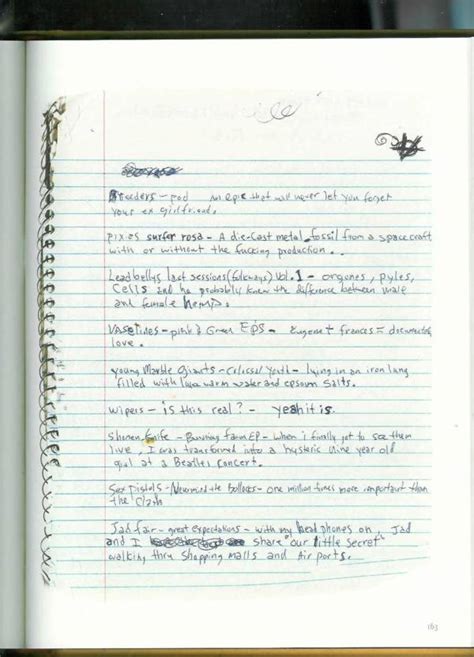 Breeders - pod    An epic that will never let you forget
your ex girlfriend.
pixies surfer rosa - A die-Cast metal fossil from a spacecraft
with or without the fucking production..
Leadbellys last sessions (folkways) Vol. 1 - orgones, pyles,
Cells and he probably knew the difference between male
and female hemp.
VASElines - pink & Green EPS - Eugene + frances = documentary
love.
young Marble Giants - Colossal Youth - laying in an iron lung
filled with luke warm water and epsom salts.
wipers - is this real? - yeah it is.
Shonen Knife - Burning farm EP - when i finally got to see them
live, I was transformed into a hysteric nine year old
girl at a Beatles concert.
Sex Pistols - Nevermind the Bollocks - one million times more important than
the Clash
Jad fair - great expectations - with my head phones on, Jad
and I share "our little secret"
walking thru shopping malls and Air ports.
163